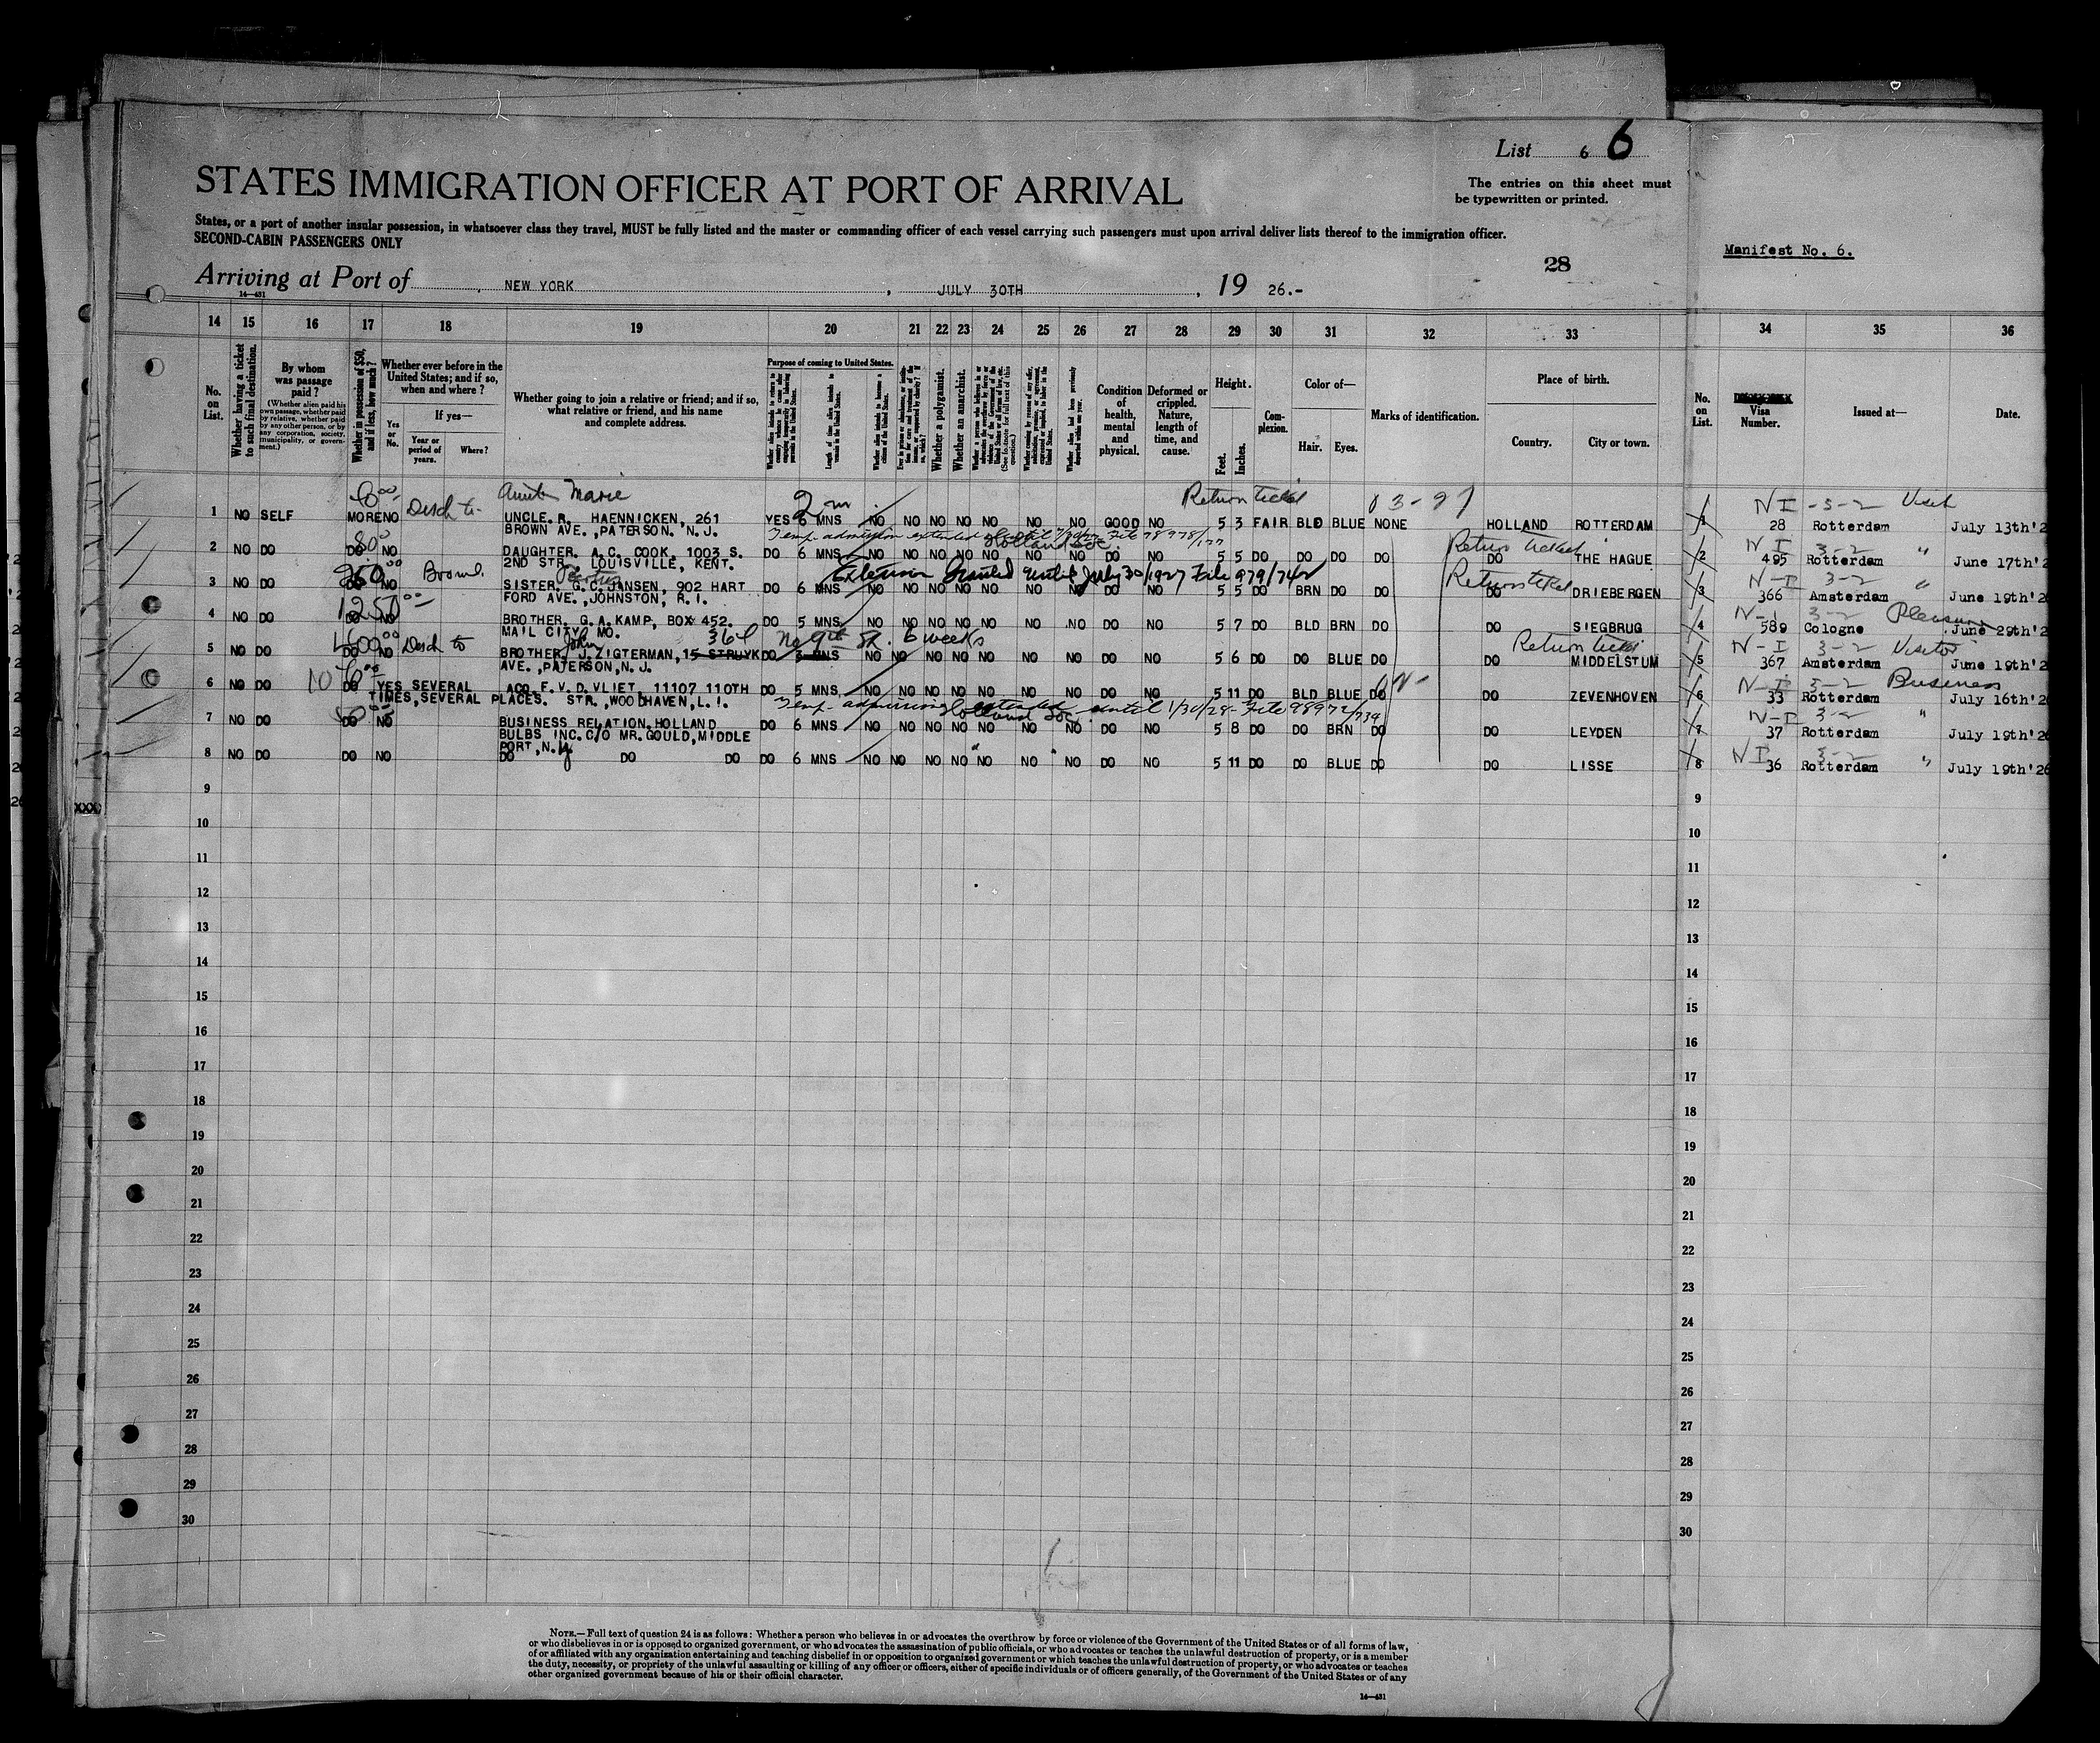 List 6 6
STATES IMMIGRATION OFFICER AT PORT OF ARRIVAL
The entries on this sheet must
be typewritten or printed.
States, or a port of another insular possession, in whatsoever class they travel, MUST be fully listed and the master or commanding officer of each vessel carrying such passengers must upon arrival deliver lists thereof to the immigration officer.
SECOND-CABIN PASSENGERS ONLY
Manifest No. 6.
28
Arriving at Port of NEW YORK , JULY 30TH , 19 26.-
14—431
14 15 16 17 18 19 20 21 22 23 24 25 26 27 28 29 30 31 32 33 34 35 36
No. on List.
Whether having a ticket to such final destination.
By whom was passage paid?
(Whether alien paid his own passage, whether paid by relative, whether paid by any other person, or by any corporation, society, municipality, or government.)
Whether in possession of $50, and if less, how much?
Whether ever before in the United States; and if so, when and where?
Yes or No.
If yes—
Year or period of years.
Where?
Whether going to join a relative or friend; and if so, what relative or friend, and his name and complete address.
Purpose of coming to United States.
Length of time alien intends to remain in the United States.
Whether alien intends to become a citizen of the United States.
Whether a polygamist.
Whether an anarchist.
Condition of health, mental and physical.
Deformed or crippled. Nature, length of time, and cause.
Height.
Feet.
Inches.
Complexion.
Color of—
Hair. Eyes.
Marks of identification.
Place of birth.
Country. City or town.
No. on List.
Visa Number.
Issued at—
Date.
Marie 2 m Return ticket NI 3-2 Visit
1 NO SELF MORE NO UNCLE. R. HAENNICKEN, 261 YES 6 MNS NO NO NO NO NO NO NO GOOD NO 5 3 FAIR BLD BLUE NONE HOLLAND ROTTERDAM 1 28 Rotterdam July 13th'2
BROWN AVE.,PATERSON. N. J.
Return ticket NI 3-2 "
2 NO DO DO NO DAUGHTER. A. C. COOK. 1003 S. DO 6 MNS NO NO NO NO NO NO NO DO NO 5 5 DO DO DO DO DO THE HAGUE 2 495 Rotterdam June 17th'2
2ND STR. LOUISVILLE, KENT.
Extension Granted until July 30/1927 File 979/742 Return ticket N-I 3-2 "
3 NO DO DO NO SISTER. G. C. JANSEN, 902 HART DO 6 MNS NO NO NO NO NO NO NO DO NO 5 5 DO BRN DO DO DO DRIEBERGEN 3 366 Amsterdam June 19th'2
FORD AVE.,JOHNSTON, R. I.
1250 3-2 Pleasure
4 NO DO DO NO BROTHER. G. A. KAMP, BOX 452. DO 5 MNS NO NO NO NO NO NO NO DO NO 5 7 DO BLD BRN DO DO SIEGBRUG 4 589 Cologne June 29th'2
MAIL CITY MO.
John 364 No 9th St. 6 weeks Return ticket N-I 3-2 Visitor
5 NO DO DO NO BROTHER, J. ZIGTERMAN, 15 STRUYK DO 3 MNS NO NO NO NO NO NO NO DO NO 5 6 DO DO BLUE DO DO MIDDELSTUM 5 367 Amsterdam June 19th'2
AVE.,PATERSON,N.J.
N-I 3-2 Business
6 NO DO DO YES SEVERAL ACQ. F. V. D. VLIET, 11107 110TH DO 5 MNS NO NO NO NO NO NO NO DO NO 5 11 DO BLD BLUE DO DO ZEVENHOVEN 6 33 Rotterdam July 16th'2
TIMES,SEVERAL PLACES. STR.,WOODHAVEN,L.I.
Temp. admission extended until 1/30/28 N-I 3-2 "
7 NO DO DO NO BUSINESS RELATION.HOLLAND DO 6 MNS NO NO NO NO NO NO NO DO NO 5 8 DO DO BRN DO DO LEYDEN 7 37 Rotterdam July 19th'26
BULBS INC.C/O MR.GOULD,MIDDLE
PORT,N.Y.
NI 3-2 "
8 NO DO DO NO DO DO DO DO 6 MNS NO NO NO NO NO NO NO DO NO 5 11 DO DO BLUE DO DO LISSE 8 36 Rotterdam July 19th'26
9 9
10 10
11 11
12 12
13 13
14 14
15 15
16 16
17 17
18 18
19 19
20 20
21 21
22 22
23 23
24 24
25 25
26 26
27 27
28 28
29 29
30 30
NOTE.—Full text of question 24 is as follows: Whether a person who believes in or advocates the overthrow by force or violence of the Government of the United States or of all forms of law,
or who disbelieves in or is opposed to organized government, or who advocates the assassination of public officials, or who advocates or teaches the unlawful destruction of property, or is a member
of or affiliated with any organization entertaining and teaching disbelief in or opposition to organized government or which teaches the unlawful destruction of property, or who advocates or teaches
the duty, necessity, or propriety of the unlawful assaulting or killing of any officer or officers, either of specific individuals or of officers generally, of the Government of the United States or of any
other organized government because of his or their official character.
14—431